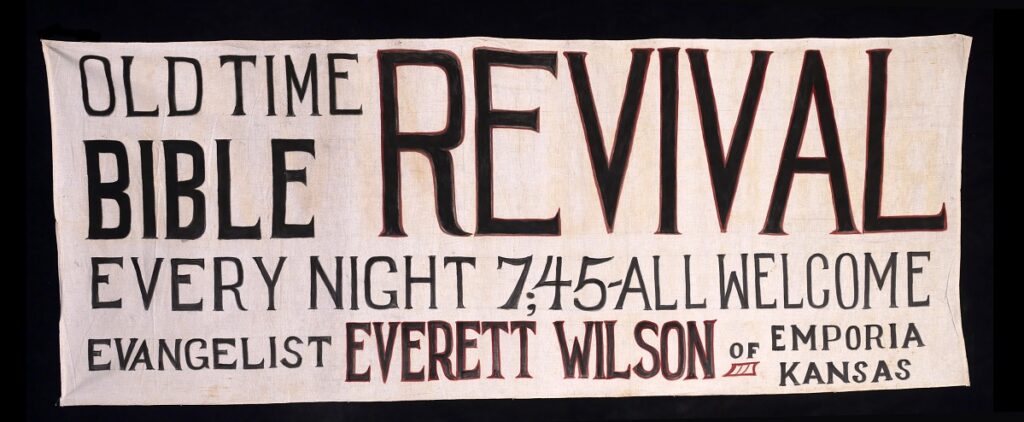 OLD TIME
BIBLE REVIVAL
EVERY NIGHT 7;45-ALL WELCOME
EVANGELIST EVERETT WILSON OF EMPORIA
KANSAS